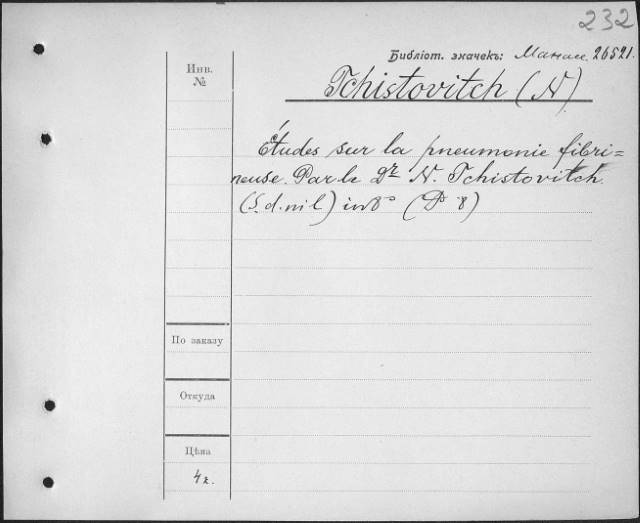 232
Инв.
№
Библіот. значекъ: 26521.
Tchistovitch (N)
Études sur la pneumonie fibri=
neuse. Par le Dr N. Tchistovitch.
(S. d. ni l) in 8°
По заказу
Откуда
Цѣна
4к.